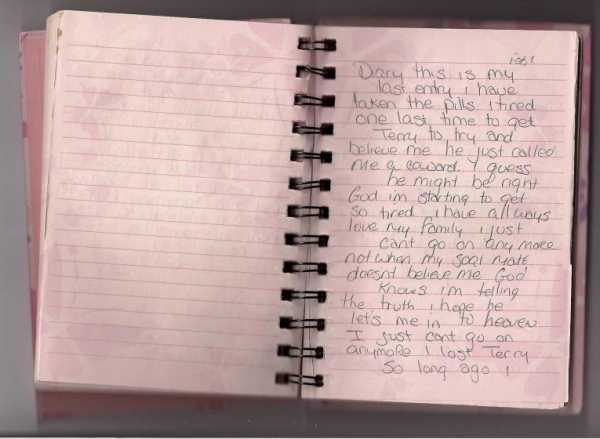 Diary this is my
last entry i have
taken the pills i tired
one last time to get
Terry to try and
believe me he just called
me a coward. I guess
he might be right
God im starting to get
so tired i have allways
love my family i just
cant go on any more
not when my soal mate
doesnt believe me God
knows i'm telling
the truth i hope he
let's me in to heaven
I just cant go on
anymore I lost Terry
so long ago !